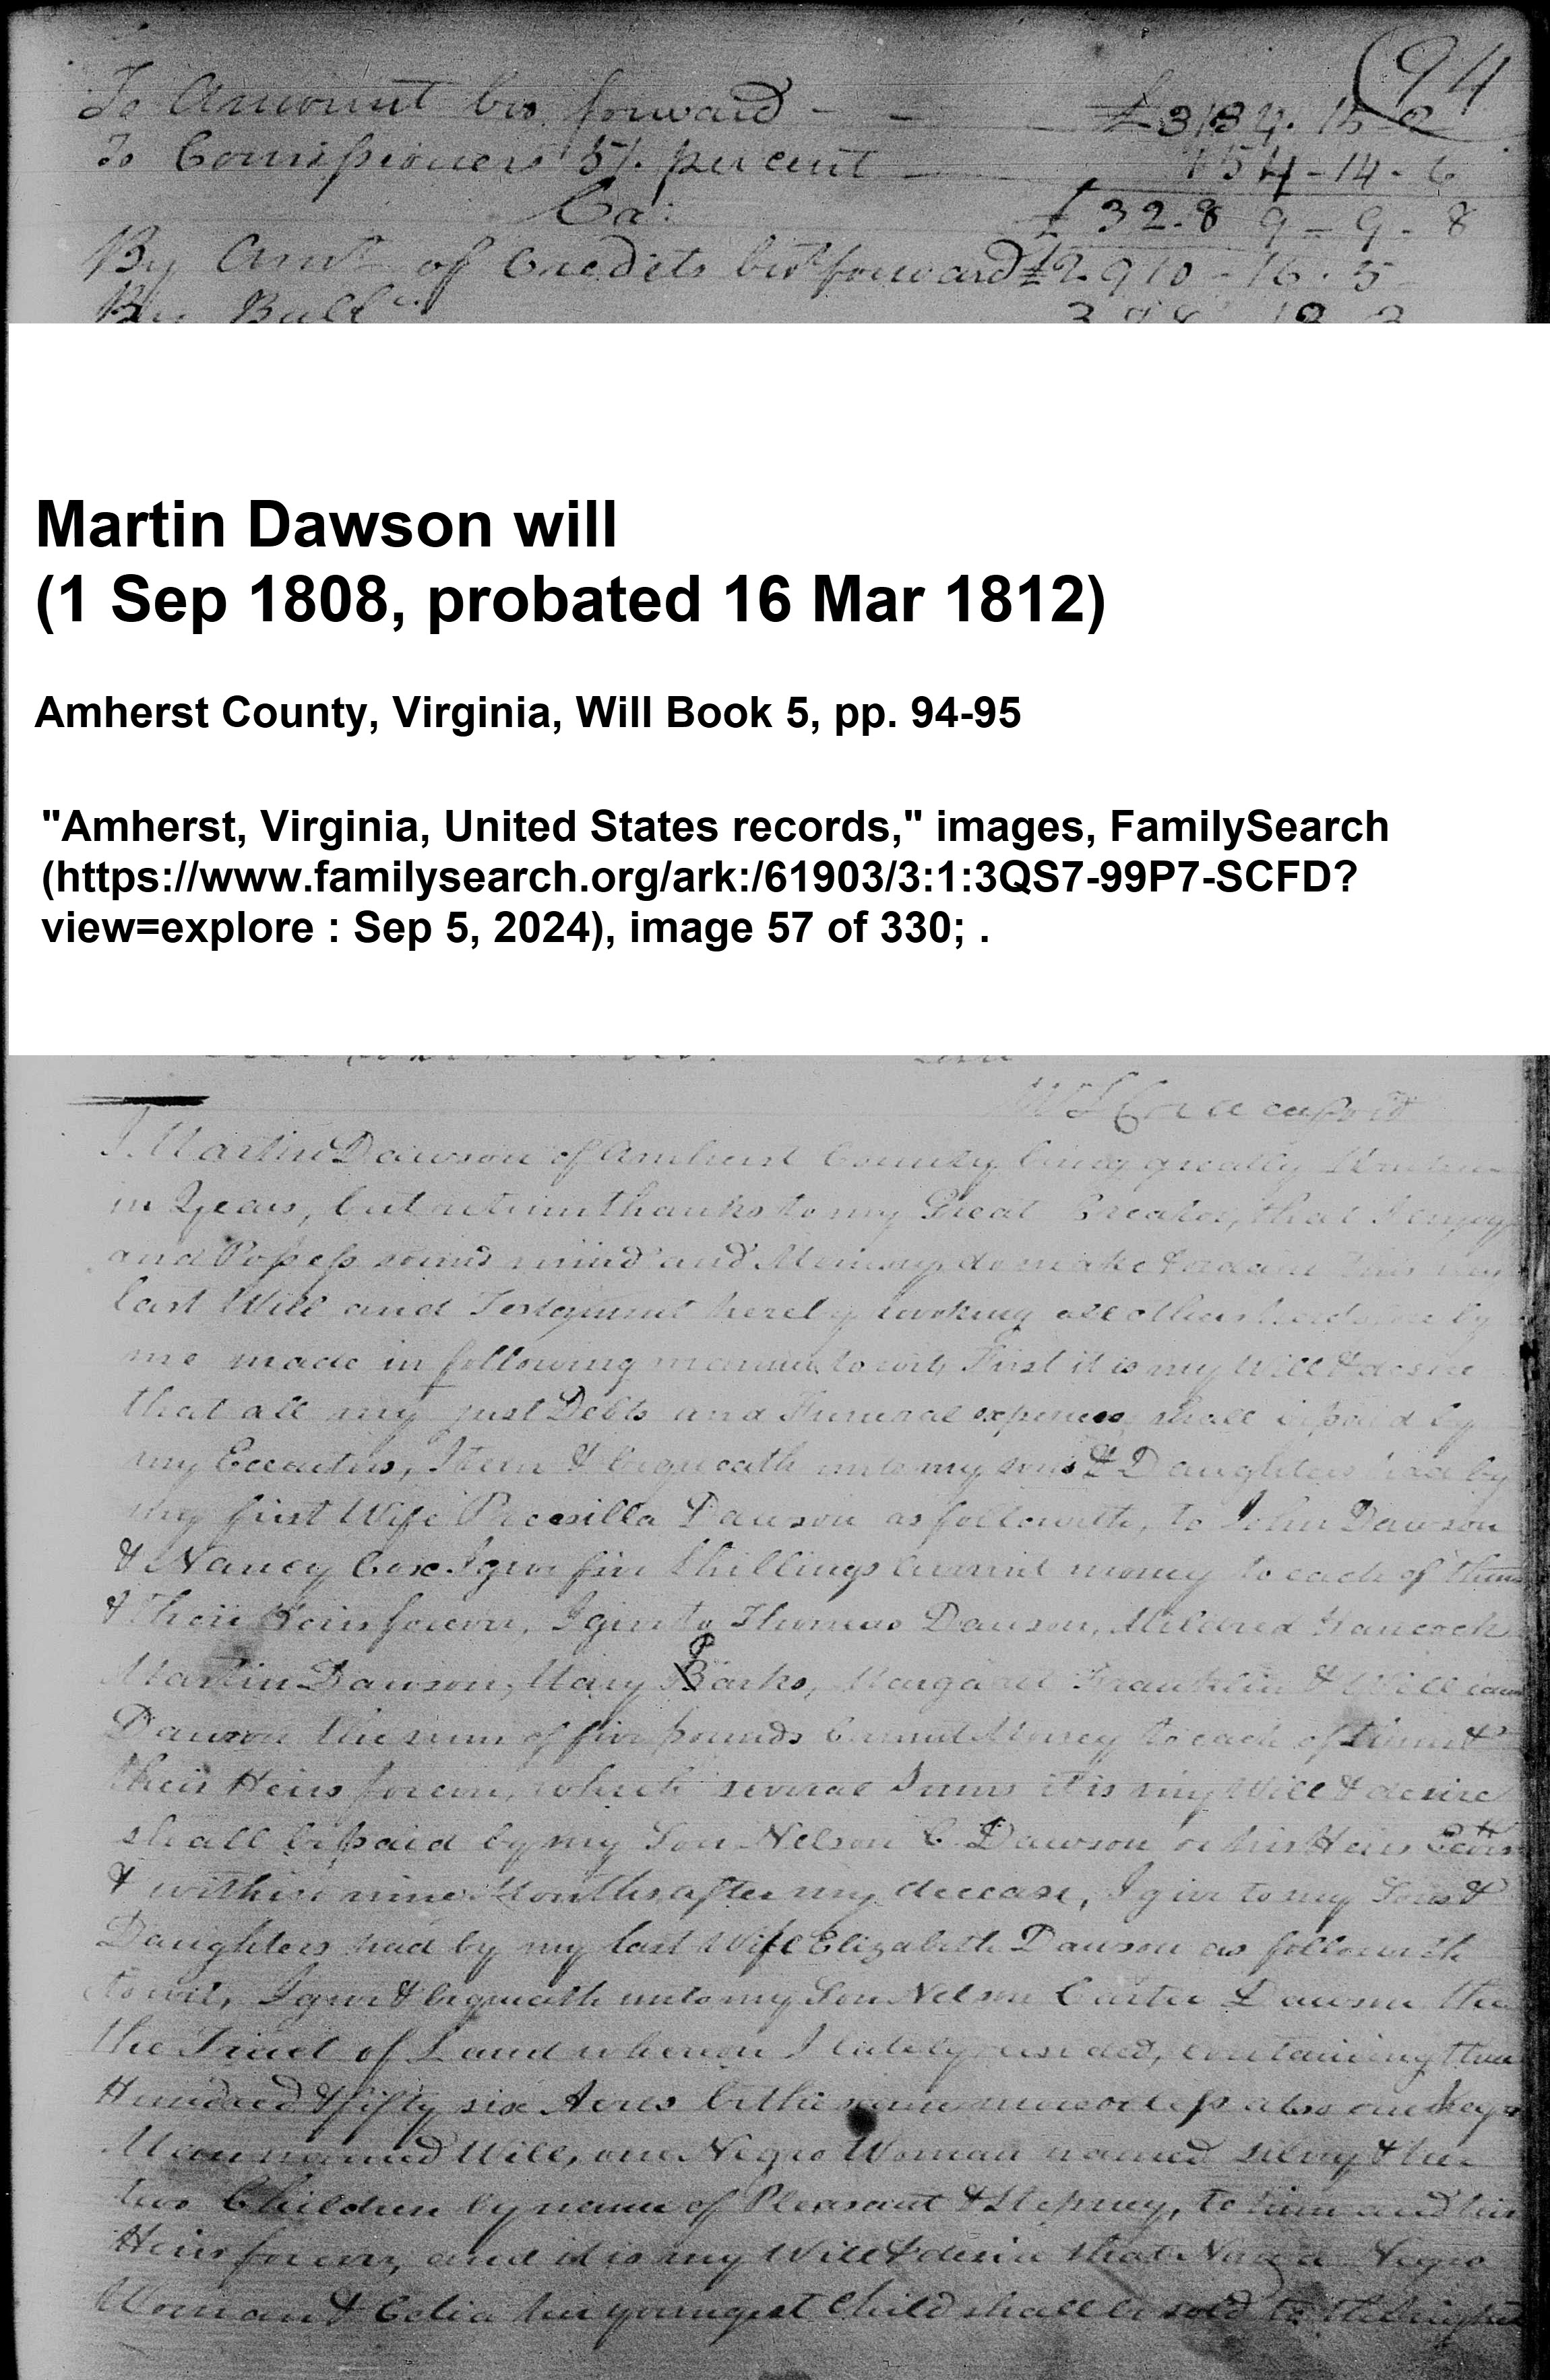 (94
To Amount bro forward - - £3134. 15-2
To Comissioners 5 p. percent 154-14-6
Ca: £3289-9-8
By Amt. of Credits brot forward £2910-16.5
By Ball
Martin Dawson will
(1 Sep 1808, probated 16 Mar 1812)
Amherst County, Virginia, Will Book 5, pp. 94-95
"Amherst, Virginia, United States records," images, FamilySearch
(https://www.familysearch.org/ark:/61903/3:1:3QS7-99P7-SCFD?
view=explore : Sep 5, 2024), image 57 of 330; .
I Martin Dawson of Amherst County being greatly
in Years, but return thanks to my Great Creator, that I enjoy
and Possess sound mind and Memory, do make & ordain this my
last Will and Testament hereby revoking all others heretofore by
me made in following manner to wit, First it is my Will & desire
that all my just Debts and Funeral expences shall be paid by
my Executors, Item I bequeath unto my sons & Daughters had by
my first Wife Precesilla Dawson as followith, to John Dawson
& Nancy Cox I give five Shillings Current money to each of them
& Their Heirs forever, I give to Thomas Dawson, Mildred Hancock
Martin Dawson, Mary Parks, Margaret Franklin & William
Dawson the sum of five pounds Current Money to each of them &
their Heirs forever, which several Sums it is my Will & desire
shall be paid by my Son Nelson C. Dawson or his Heirs
& within nine Months after my decease, I give to my Sons &
Daughters had by my last Wife Elizabeth Dawson as followith
to wit, I give & bequeath unto my Son Nelson Carter Dawson the
the Tract of Land whereon I lately resided, containing three
Hundred & fifty six Acres be the same more or less also one Negro
Man named Will, one Negro Woman named Silvy & her
two Children by name of Pleasant & Stepney, to him and his
Heirs forever, and it is my Will & desire that Nan a Negro
Woman & Celia her youngest Child shall be sold to the highest